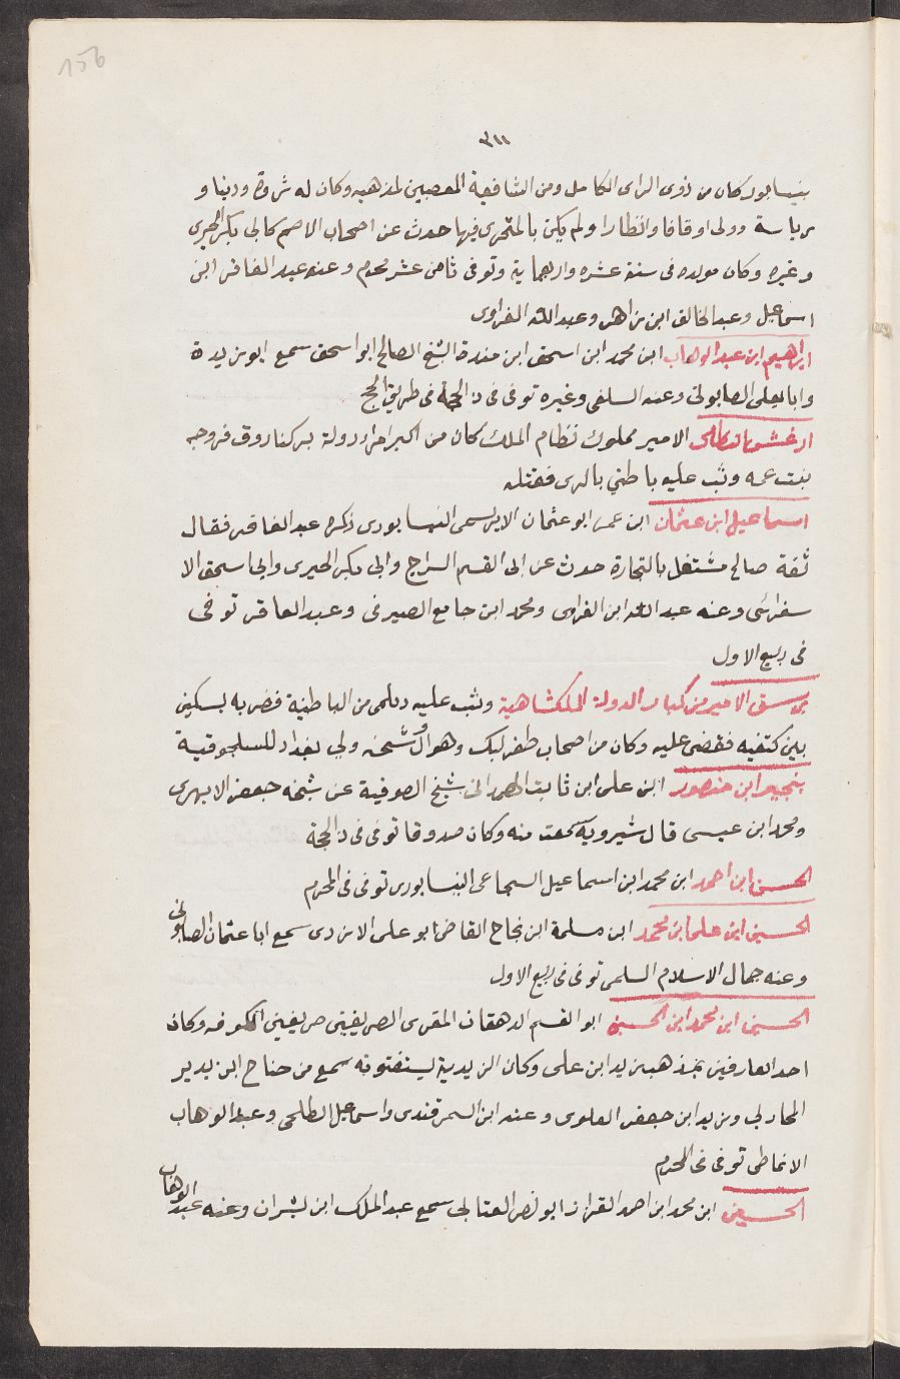 156
٣١١
بنيسابور كان من ذوى الراى الكامل ومن الشافعية المعصبين لمذهبه وكان له ثروة ودينا و
رياسة وولى اوقافا وانظارا ولم يكن بالمتحرى فيها حدث عن اصحاب الاصم كابى بكر الحيرى
وغيره وكان مولده فى سنة عشره واربعماية وتوفى ثامن عشر محرم وعنه عبد الغافر ابن
اسماعيل وعبد الخالق ابن زاهر وعبد الله الفراوى
ابراهيم ابن عبد الوهاب ابن محمد ابن اسحق ابن مندة الشيخ الصالح ابو اسحق سمع ابو زيدة
وابا يعلى الصابونى وعنه السلفى وغيره توفى فى ذ الحجة فى طريق الحج
ارغش النظامى الامير مملوك نظام الملك كان من اكبر امرا دولة بركياروق فزوجه
بنت عمه وثب عليه باطني بالرى فقتله
اسماعيل ابن عثمان ابن عمر ابو عثمان الابريسمى النيسابورى ذكره عبد الغافر فقال
ثقة صالح مشتغل بالتجارة حدث عن ابى القسم السراج وابى بكر الحيرى وابى اسحق الا
سفرائنى وعنه عبد الله ابن الفراوى ومحمد ابن جامع الصيرفى وعبد الغافر توفى
فى ربيع الاول
برسق الامير من كبار الدولة الملكشاهية وثب عليه ديلمى من الباطنية فضربه بسكين
بين كتفيه فقضى عليه وكان من اصحاب طغرلبك وهو اول شحنة ولي بغداد للسلجوقية
بنجير ابن منصور ابن على ابن ثابت الهمدانى شيخ الصوفية عن شيخه جعفر الابهرى
ومحمد ابن عيسى قال شيرويه سمعت منه وكان صدوقا توفى فى ذ الحجة
الحسن ابن احمد ابن محمد ابن اسماعيل الشجاعى النيسابورى توفى فى المحرم
الحسين ابن على ابن محمد ابن مسلمة ابن نجاح القاضى ابو على الازدى سمع ابا عثمان الصابونى
وعنه جمال الاسلام السلمى توفى فى ربيع الاول
الحسين ابن محمد ابن الحسين ابو القسم الدهقان المقرى الصريفينى صريفين الكوفه وكان
احد العارفين بمذهب زيد ابن على وكان الزيدية يستفتونه سمع من جناح ابن يدير
المحاربى وزيد ابن جعفر العلوى وعنه ابن السمرقندى واسماعيل الطلحى وعبد الوهاب
الانماطى توفى فى المحرم
الحسين ابن محمد ابن احمد القزاز ابو نصر العتابى سمع عبد الملك ابن بشران وعنه عبد الوهاب